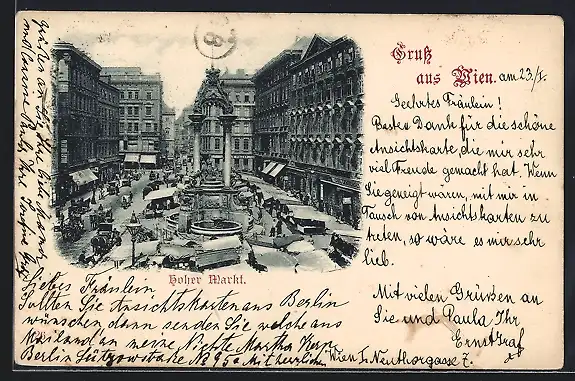 Gruß
aus Wien. am 23/I.
Geehrtes Fräulein!
Besten Dank für die schöne
Ansichtskarte, die mir sehr
viel Freude gemacht hat. Wenn
Sie geneigt wären, mit mir in
Tausch von Ansichtskarten zu
treten, so wäre es mir sehr
lieb.
Mit vielen Grüßen an
Sie und Paula Ihr
Ernst Graf
Wien I. Neuthorgasse 7.
Hoher Markt.
Liebes Fräulein
Sollten Sie Ansichtskarten aus Berlin
wünschen, dann senden Sie welche aus
Mailand an meine Nichte Martha Kern
Berlin Lützowstraße No 95a Mit herzlichen
Grüßen an Sie, Ihre
und Paula, Ihre
8